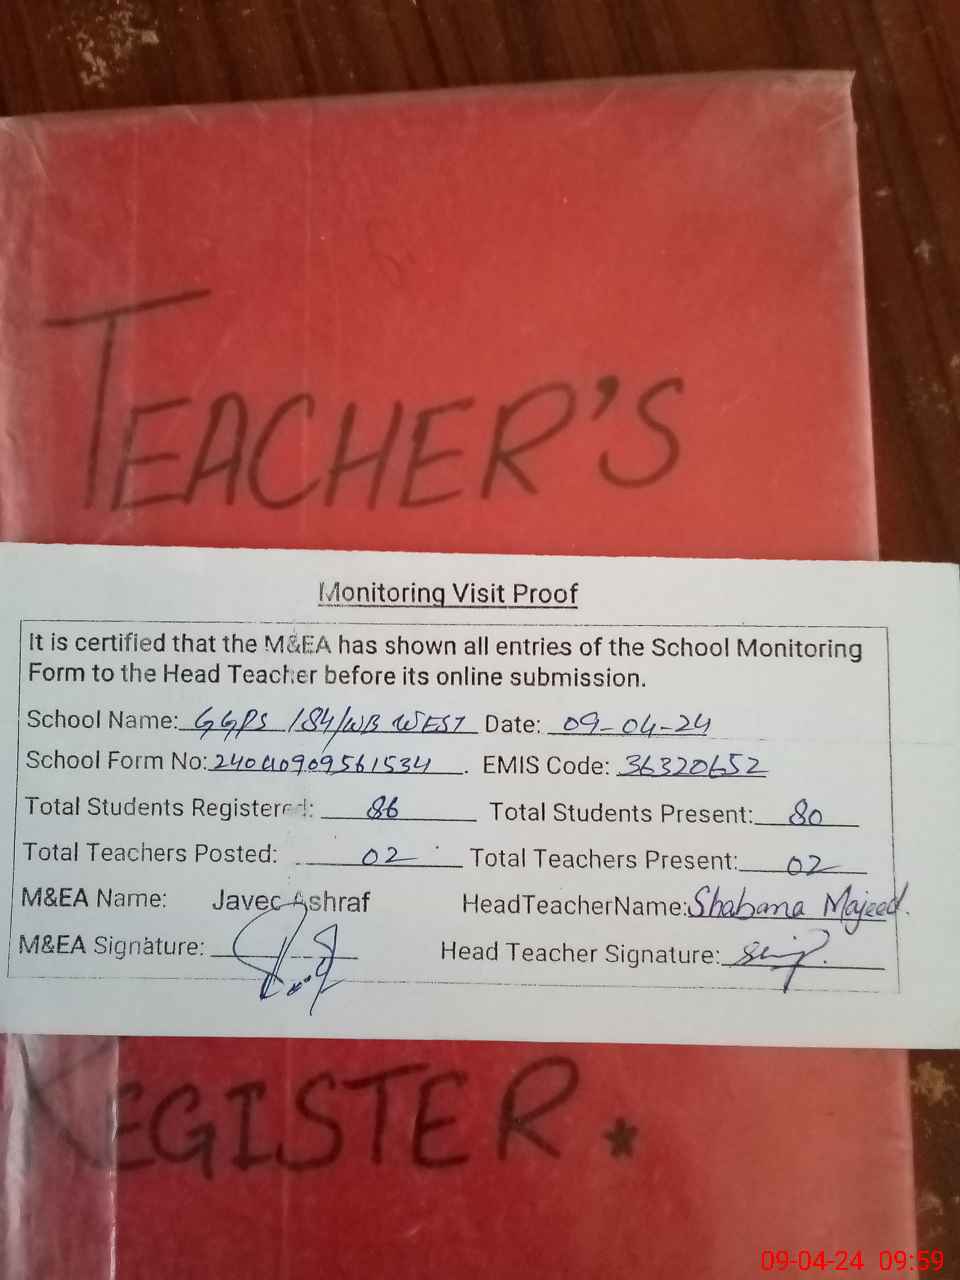 TEACHER'S
Monitoring Visit Proof
It is certified that the M&EA has shown all entries of the School Monitoring
Form to the Head Teacher before its online submission.
School Name: GGPS 184/WB WEST Date: 09-04-24
School Form No: EMIS Code: 36320652
Total Students Registered: 86 Total Students Present: 80
Total Teachers Posted: 02 Total Teachers Present: 02
M&EA Name: Javed Ashraf HeadTeacherName: Shabana Majeed.
M&EA Signature: Head Teacher Signature:
REGISTER.
09-04-24 09:59